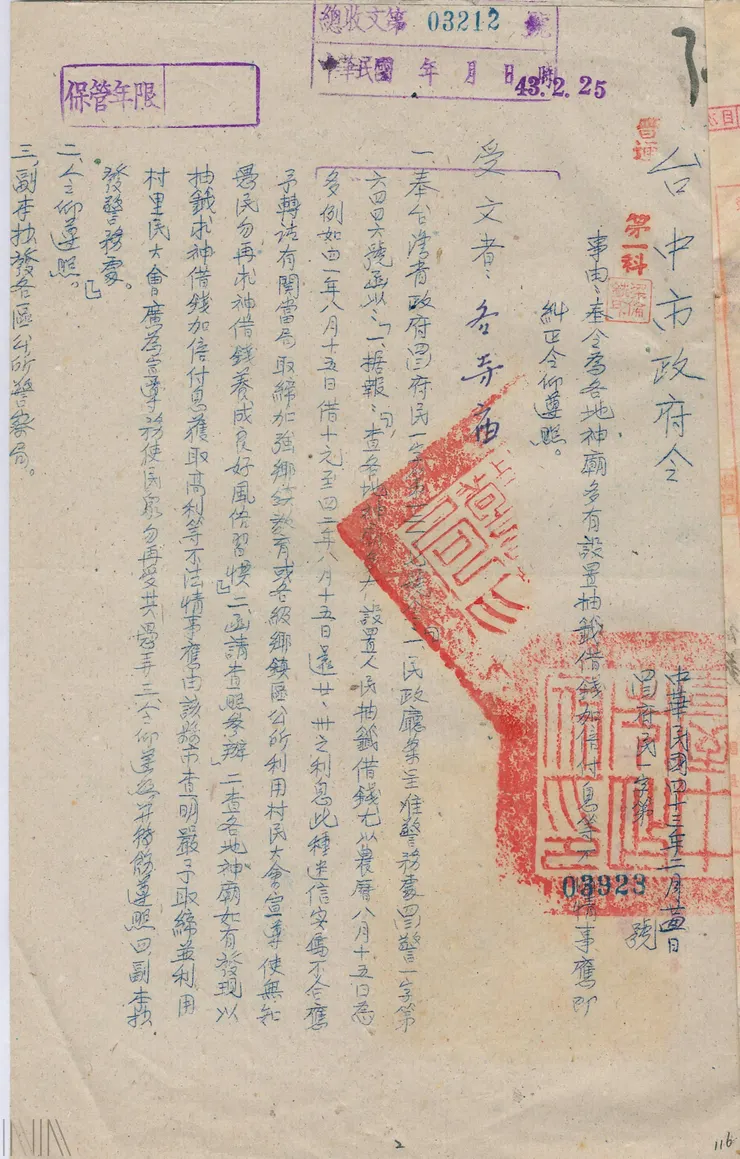 總收文第 03212 號
中華民國 年 月 日 時
43.2.25
保管年限
台中市政府令
第一科
中華民國四十三年二月 日
府民一字第 03923 號
事由:奉令為各地神廟多有設置抽籤借錢加倍付息等不 情事應即
糾正令仰遵照。
受文者:各寺廟
一奉台灣省政府 府民一字第 一民政廳案呈准警務處 警一字第
六四四六號函以:「一、据報:查各地神 設置人民抽籤借錢尤以農曆八月十五日為
多例如四一年八月十五日借十元至四二年八月十五日還廿、卅之利息此種迷信 不合應
予轉請有關當局取締加強鄉 教育或各級鄉鎮區公所利用村民大會宣導使無知
愚民勿再求神借錢養成良好風俗習慣」二函請查照參辦」二查各地神廟如有發現以
抽籤求神借錢加倍付息獲取高利等不法情事應由該縣市查明嚴予取締並利用
村里民大會廣為宣導務使民眾勿再受其愚弄三令仰 遵照四副本抄
發警務處。」
二、令仰遵照。
三、副本抄發各區公所警察局。
2
116